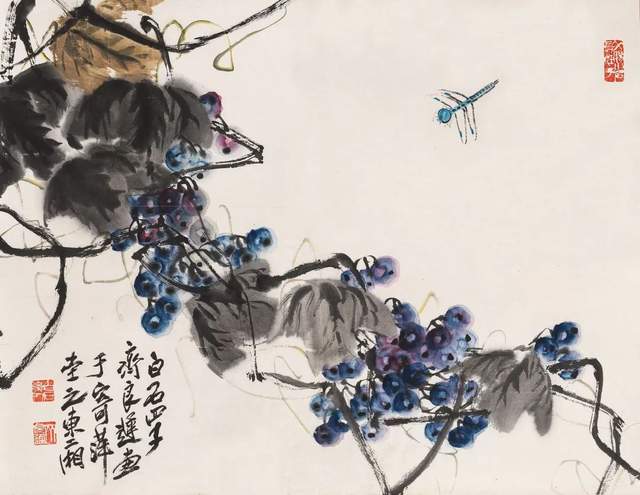 白石四子
齊良遲畫
于寄萍
堂之東廂